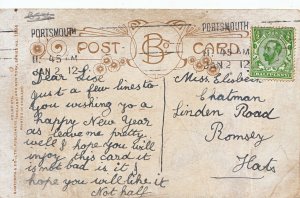 PORTSMOUTH
11 45 AM
JAN 2 12
PORTSMOUTH
JAN 2 12
POST CARD
Dear Elsie
Just a few lines to
you wishing yo a
happy New Year
as leave me pretty
well I hope you will
enjoy this card it
is not bad is it I
hope you will like it
Not half
Miss Elizabeth
Chatman
Linden Road
Romsey
Hats